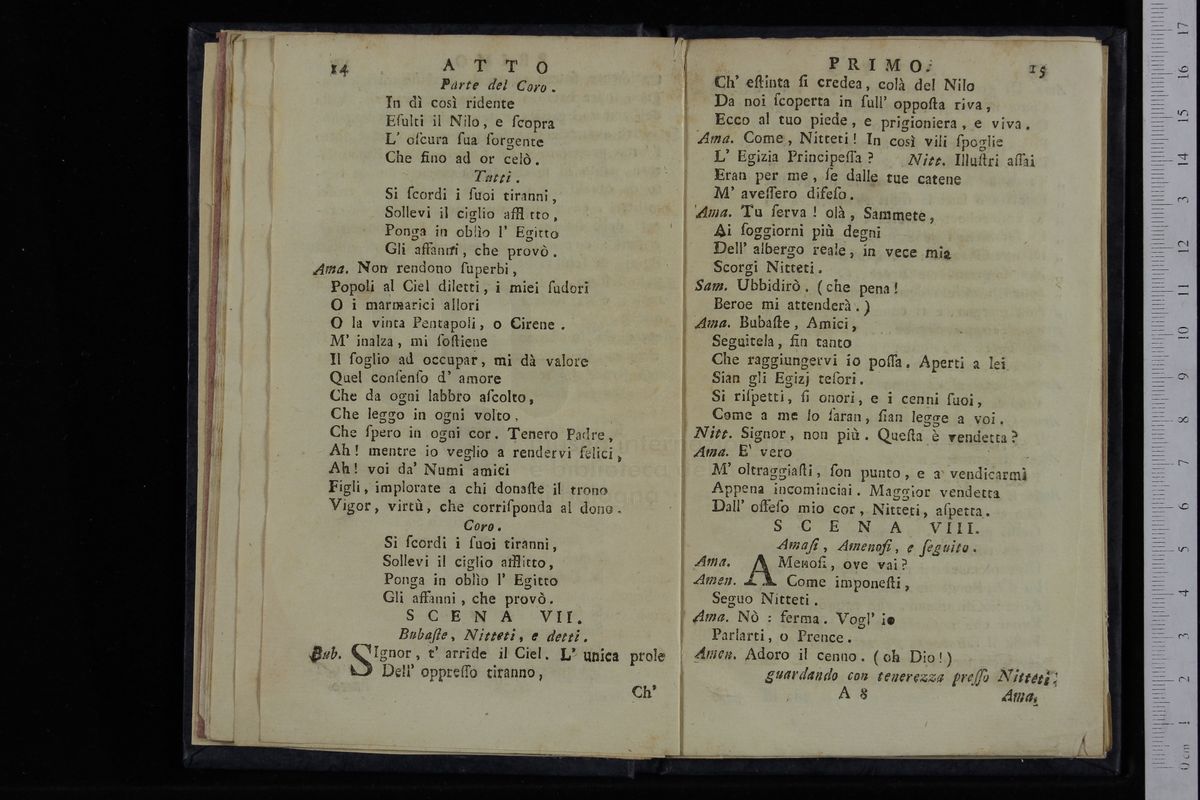 14 ATTO
Parte del Coro.
In dì così ridente
Eſulti il Nilo, e ſcopra
L' oſcura ſua ſorgente
Che fino ad or celò.
Tutti.
Si ſcordi i ſuoi tiranni,
Sollevi il ciglio affl tto,
Ponga in oblìo l' Egitto
Gli affanni, che provò.
Ama. Non rendono ſuperbi,
Popoli al Ciel diletti, i miei ſudori
O i marmarici allori
O la vinta Pentapoli, o Cirene.
M' inalza, mi ſoſtiene
Il ſoglio ad occupar, mi dà valore
Quel conſenſo d' amore
Che da ogni labbro aſcolto,
Che leggo in ogni volto.
Che ſpero in ogni cor. Tenero Padre,
Ah! mentre io veglio a rendervi felici,
Ah! voi da' Numi amici
Figli, implorate a chi donaſte il trono
Vigor, virtù, che corriſponda al dono.
Coro.
Si ſcordi i ſuoi tiranni,
Sollevi il ciglio afflitto,
Ponga in oblìo l' Egitto
Gli affanni, che provò.
SCENA VII.
Bubaſte, Nitteti, e detti.
Bub. SIgnor, t' arride il Ciel. L' unica prole
Dell' oppreſſo tiranno,
Ch'
PRIMO. 15
Ch' eſtinta ſi credea, colà del Nilo
Da noi ſcoperta in ſull' oppoſta riva,
Ecco al tuo piede, e prigioniera, e viva.
Ama. Come, Nitteti! In così vili ſpoglie
L' Egizia Principeſſa? Nitt. Illuſtri aſſai
Eran per me, ſe dalle tue catene
M' aveſſero difeſo.
Ama. Tu ſerva! olà, Sammete,
Ai ſoggiorni più degni
Dell' albergo reale, in vece mia
Scorgi Nitteti.
Sam. Ubbidirò. (che pena!
Beroe mi attenderà.)
Ama. Bubaſte, Amici,
Seguitela, ſin tanto
Che raggiungervi io poſſa. Aperti a lei
Sian gli Egizj teſori.
Si riſpetti, ſi onori, e i cenni ſuoi,
Come a me lo ſaran, ſian legge a voi.
Nitt. Signor, non più. Queſta è vendetta?
Ama. E' vero
M' oltraggiaſti, ſon punto, e a vendicarmi
Appena incominciai. Maggior vendetta
Dall' offeſo mio cor, Nitteti, aſpetta.
SCENA VIII.
Amaſi, Amenofi, e ſeguito.
Ama. AMenofi, ove vai?
Amen. Come imponeſti,
Seguo Nitteti.
Ama. Nò: ferma. Vogl' io
Parlarti, o Prence.
Amen. Adoro il cenno. (oh Dio!)
guardando con tenerezza preſſo Nitteti;
A 8 Ama.